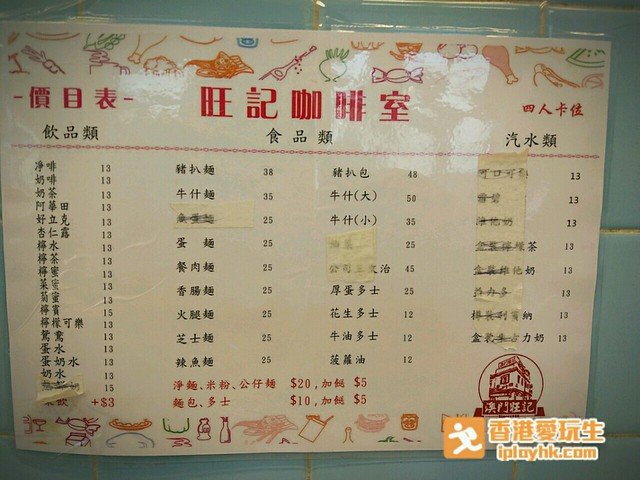 -價目表-
旺記咖啡室
四人卡位
飲品類
淨啡 13
奶啡 13
奶茶 13
阿華田 13
好立克 13
杏仁露 13
檸水 13
檸茶 13
檸蜜 13
菜蜜 13
菊蜜 13
檸賓 13
檸檬可樂 13
鴛鴦 13
蛋水 13
蛋奶水 13
奶水 13
奶 15
飲 +$3
食品類
豬扒麵 38
牛什麵 35
魚蛋麵 25
蛋 麵 25
餐肉麵 25
香腸麵 25
火腿麵 25
芝士麵 25
辣魚麵 25
豬扒包 48
牛什(大) 50
牛什(小) 35
油菜 25
公司三文治 45
厚蛋多士 25
花生多士 12
牛油多士 12
菠蘿油 12
淨麵、米粉、公仔麵 $20,加餸 $5
麵包、多士 $10,加餸 $5
汽水類
可口可樂 13
13
維他奶 13
盒裝檸檬茶 13
盒裝維他奶 13
益力多 13
樽裝利賓納 13
盒裝朱古力奶 13
澳門旺記
香港愛玩生
iplayhk.com